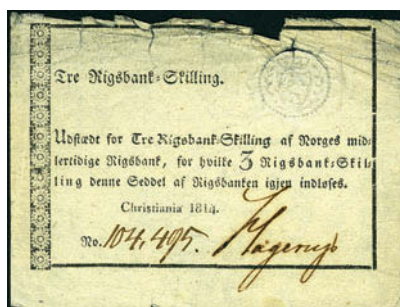 Tre Rigsbank-Skilling.
Udstædt for Tre Rigsbank-Skilling af Norges mid-
lertidige Rigsbank, for hvilke 3 Rigsbank-Skil-
ling denne Seddel af Rigsbanken igjen indløses.
Christiania 1814.
No. 104,495. Hagerup